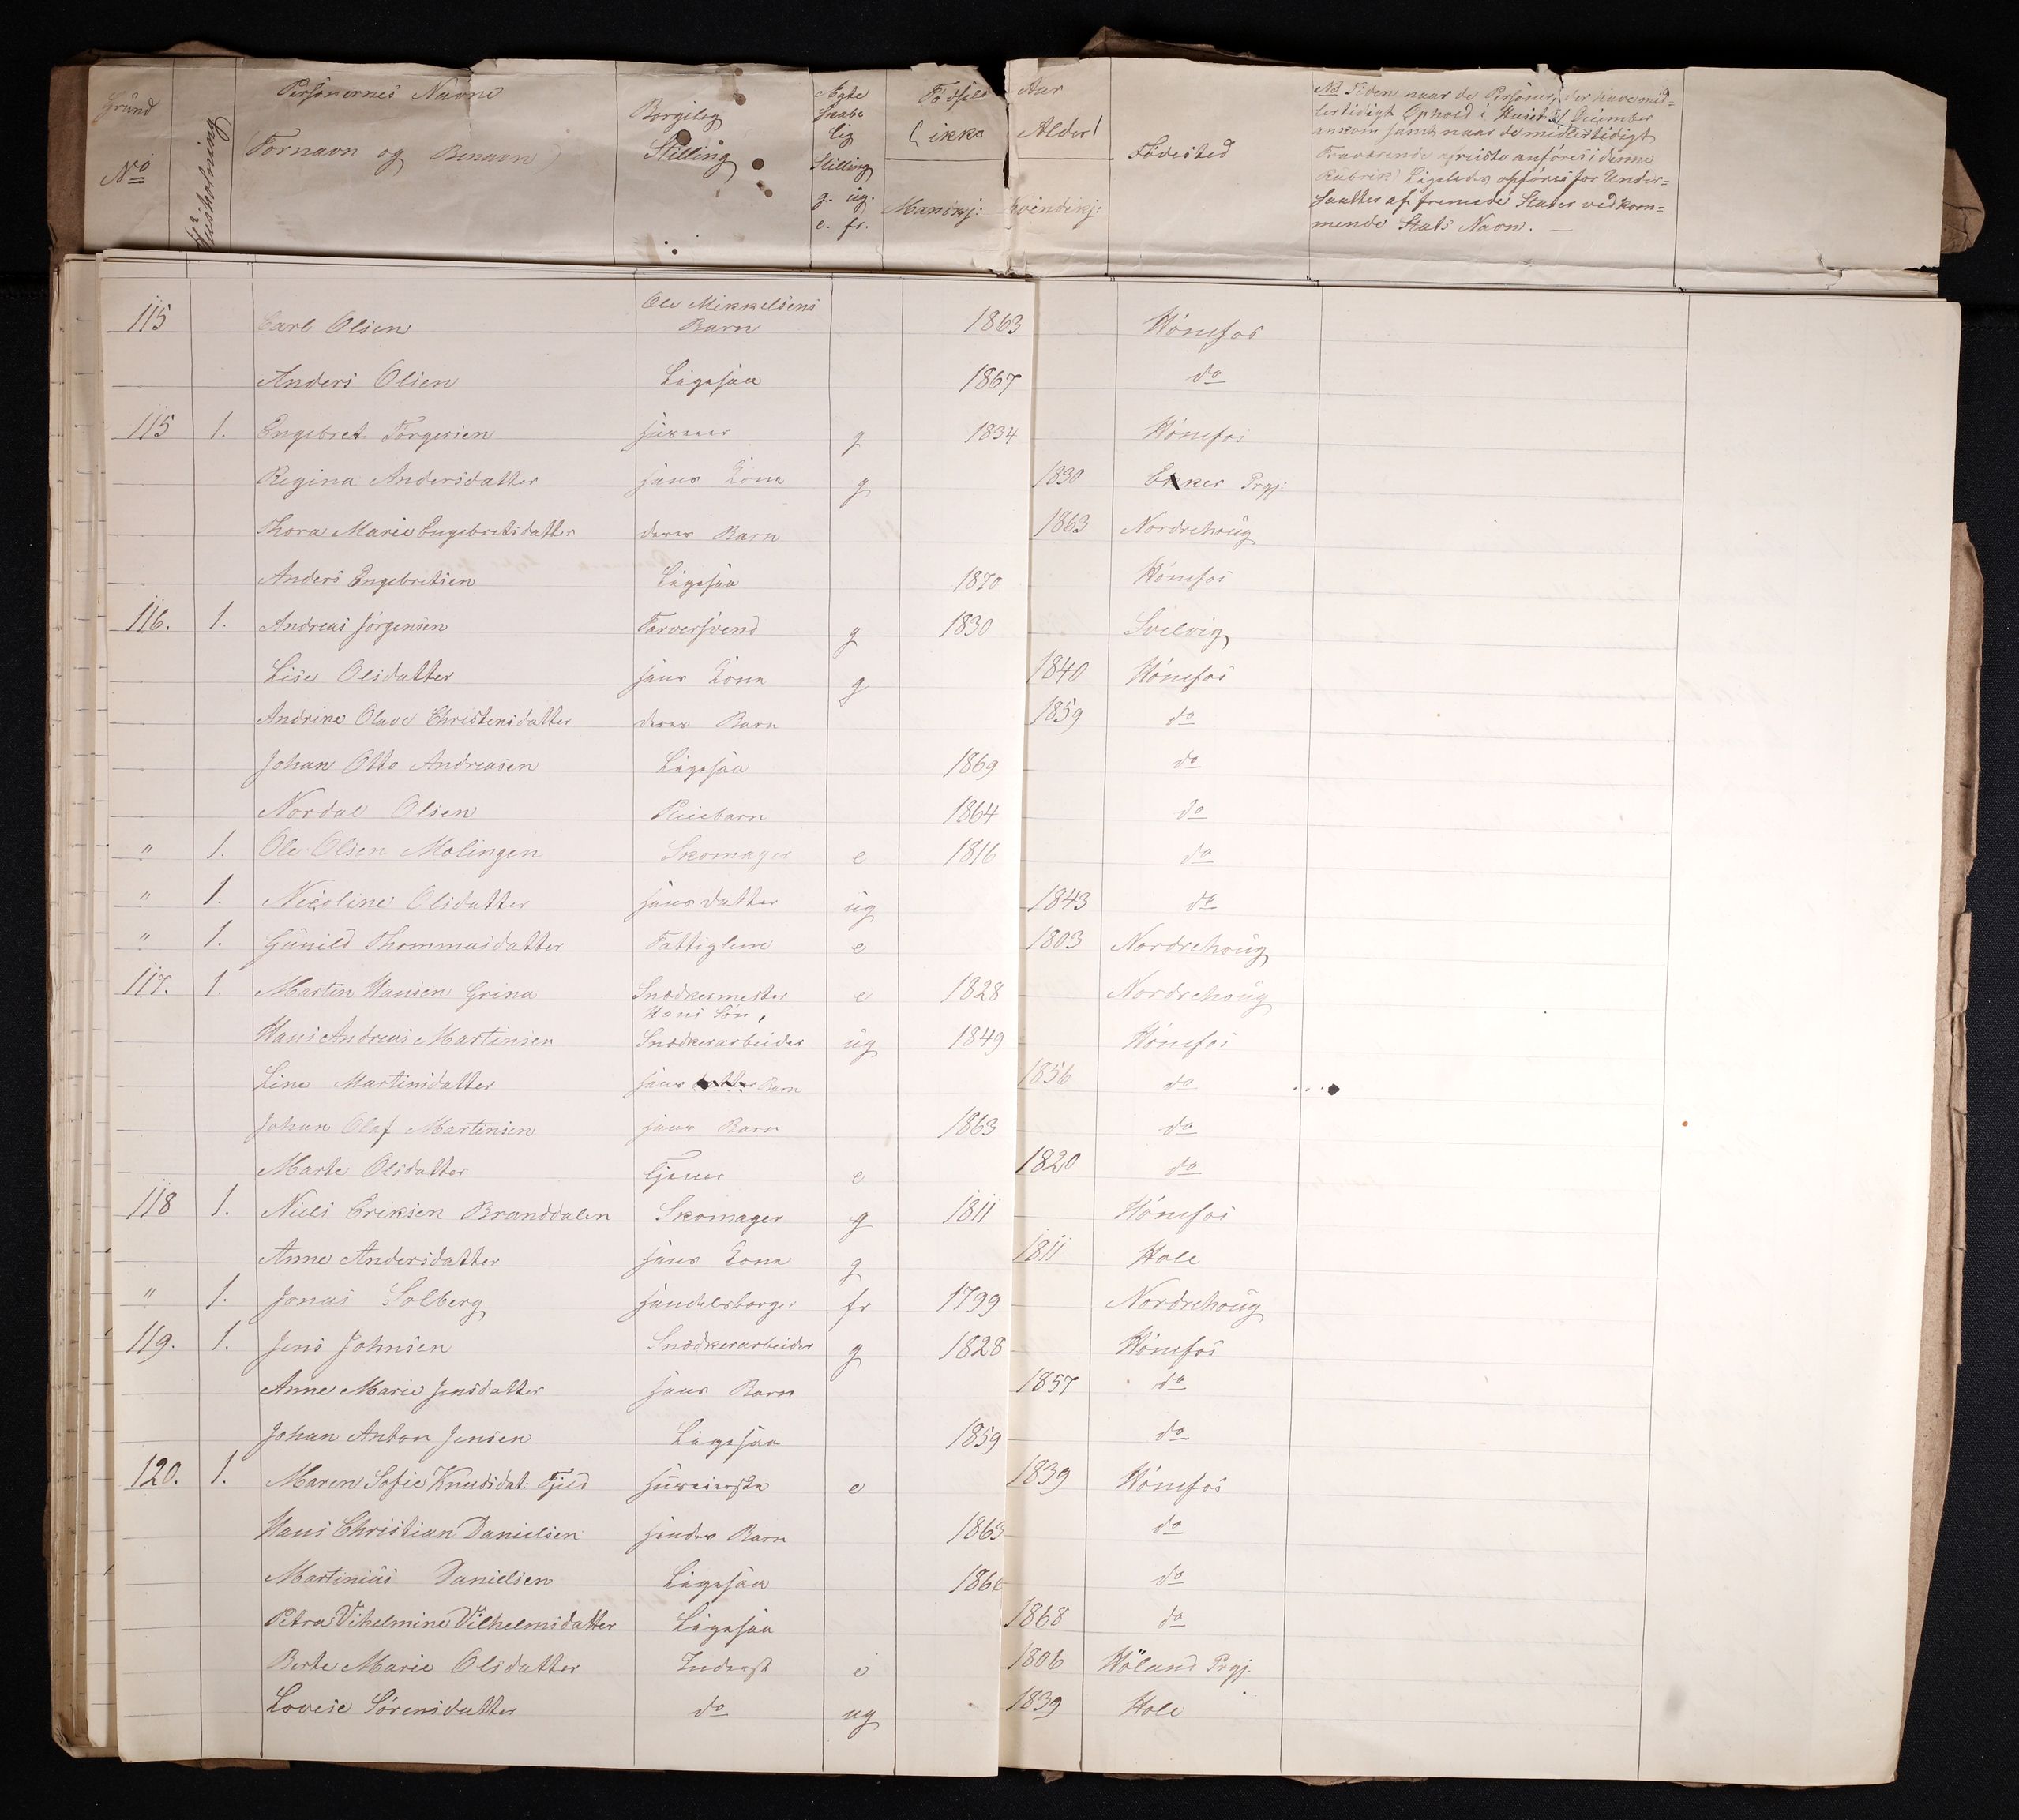 Grund No
No Husholdning
Personernes Navne (Fornavn og Benavn)
Borgerlig Stilling
Ægteskabelig Stilling g. ug. e. fr.
Fødsels Aar (ikke Alder)
Mandkj: Qvindekj:
Födested
NB Tiden naar de Personer, der have mid-
lertidigt Ophold i Huset 31 December
ankom samt naar de midlertidigt
Fraværende afreiste anføres i denne
Rubrik Ligeledes opføres for Under-
saatter af fremede Stater vedkom-
mende Stats Navn. —
115 Carl Olsen Ole Mikkelsens Barn 1863 Hönefos
Anders Olsen Ligesaa 1867 do
115 1. Engebret Torgersen g 1834 Hönefos
Regina Andersdatter hans Kona g 1830 Eker Prgj:
Thora Marie Engebretsdatter deres Barn 1863 Nordrehoug
Anders Engebretsen Ligesaa 1870 Hönefos
116. 1. Andreas Jørgensen Farversvend g 1830 Svelvig
Lise Olsdatter hans Kona g 1840 Hönefos
Andrine Olave Christensdatter deres Barn 1859 do
Johan Otto Andreasen Ligesaa 1869 do
Nordal Olsen Pleiebarn 1864 do
" 1. Ole Olsen Molingen Skomager e 1816 do
" 1. Nicoline Olsdatter hans datter ug 1843 do
" 1. Gunild Thommasdatter Fattiglem e 1803 Nordrehoug
117. 1. Martin Hansen Grina Snedkermester e 1828 Nordrehoug
Hans Andreas Martinsen Hans Søn, Snedkerarbeider ug 1849 Hönefos
Line Martinsdatter hans Barn 1856 do
Johan Olaf Martinsen hans Barn 1863 do
Marte Olsdatter Tjener e 1820 do
118 1. Niels Eriksen Branddalen Skomager g 1811 Hönefos
Anne Andersdatter hans Kona g 1811 Hole
" 1. Jonas Solberg Handelsborger fr 1799 Nordrehoug
119. 1. Jens Johnsen Snedkerarbeider g 1828 Hönefos
Anne Marie Jensdatter hans Barn 1857 do
Johan Anton Jensen Ligesaa 1859 do
120. 1. Maren Sofie Knudsdat: Fjeld Huseierska e 1839 Hönefos
Hans Christian Danielsen hendes Barn 1863 do
Martinius Danielsen Ligesaa 1866 do
Petra Vihelmine Vilhelmsdatter Ligesaa 1868 do
Berte Marie Olsdatter Inderst e 1806 Höland Prgj.
Lovise Sörensdatter do ug 1839 Hole